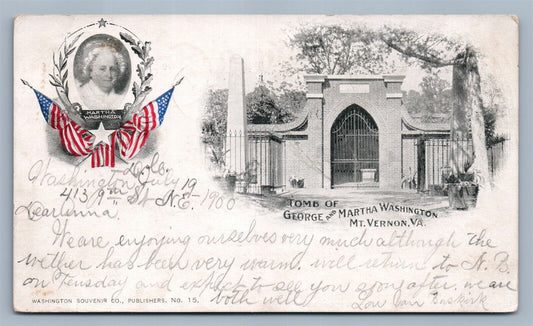 MARTHA
WASHINGTON
TOMB OF
GEORGE AND MARTHA WASHINGTON
MT. VERNON, VA.
Washington July 19
413 9th St N.E. 1900
Dear Anna.
We are enjoying ourselves very much although the
wether has been very warm. will return to N.B.
on Tuesday and expect to see you soon after. we are
both well
Lou van Buskirk
WASHINGTON SOUVENIR CO., PUBLISHERS. No. 15.